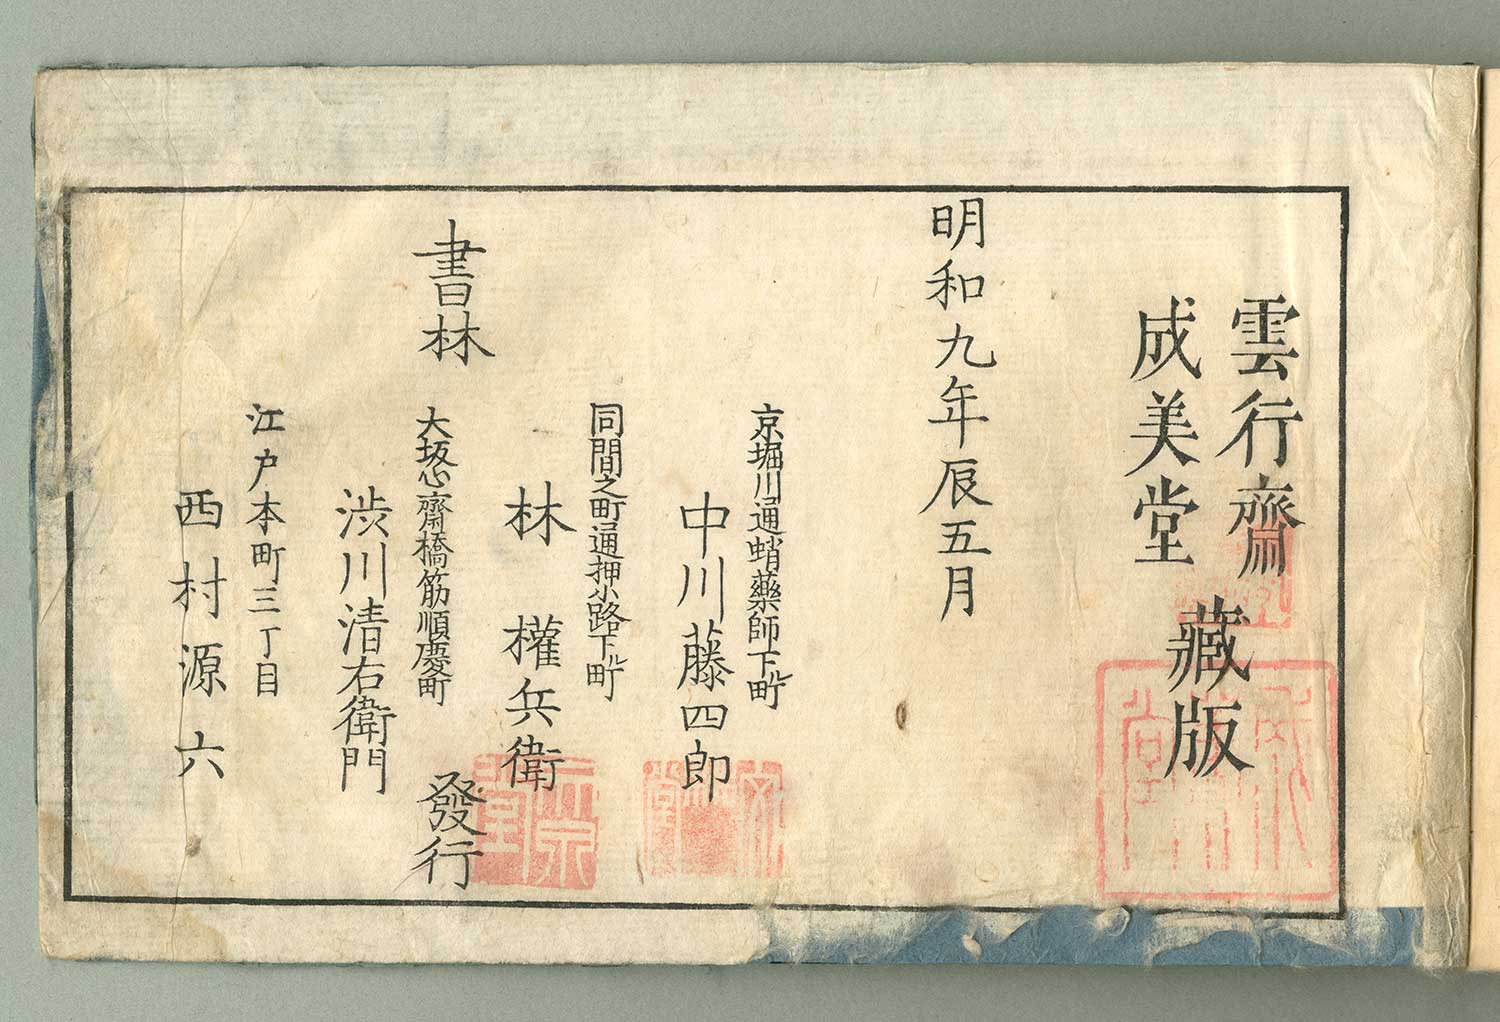 雲行齋
成美堂
藏版
明和九年辰五月
京堀川通蛸藥師下ル町
中川藤四郎
同間之町通押小路下ル町
林權兵衛
書林
大坂心齋橋筋順慶町
渋川清右衛門
發行
江戸本町三丁目
西村源六